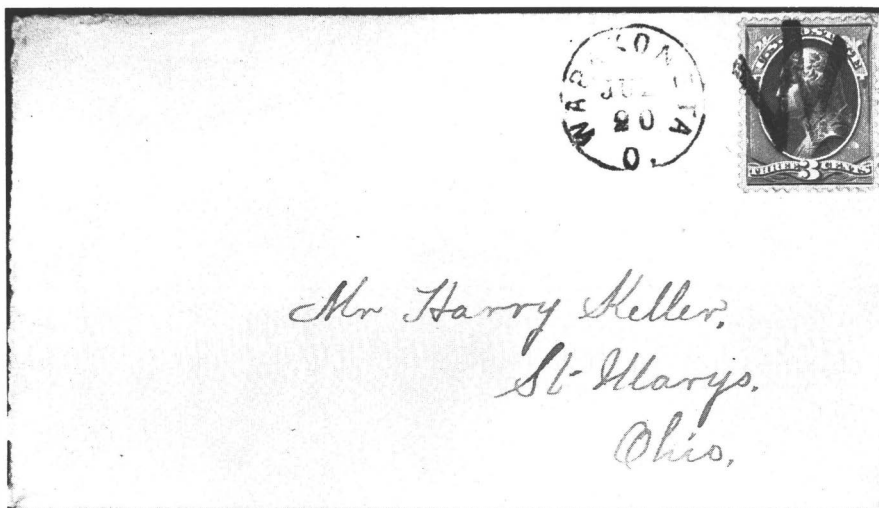 WAPAKONETA
JUL
20
O.
U.S. POSTAGE.
THREE 3 CENTS
Mr Harry Keller,
St. Marys.
Ohio.